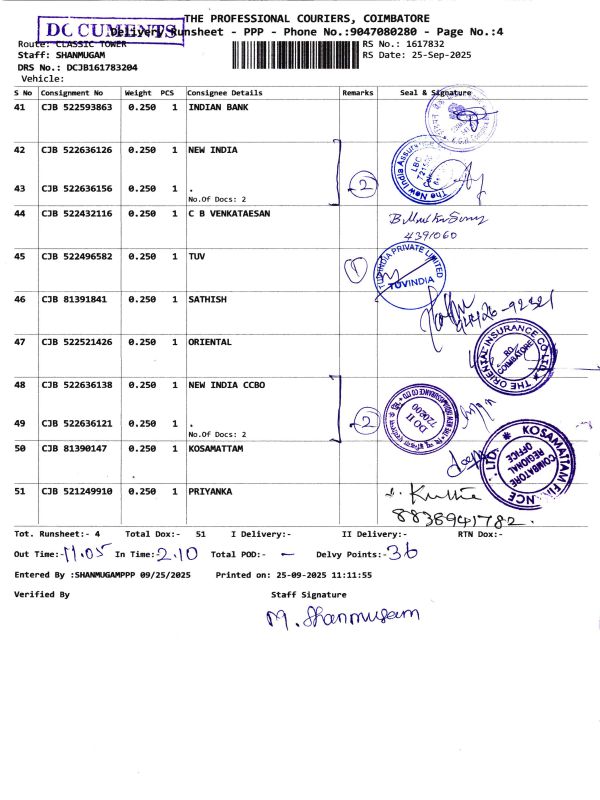 THE PROFESSIONAL COURIERS, COIMBATORE
DOCUMENTS
Delivery Runsheet - PPP - Phone No.:9047080280 - Page No.:4
Route: CLASSIC TOWER
RS No.: 1617832
Staff: SHANMUGAM
RS Date: 25-Sep-2025
DRS No.: DCJB161783204
Vehicle:
S No Consignment No Weight PCS Consignee Details Remarks Seal & Signature
41 CJB 522593863 0.250 1 INDIAN BANK
42 CJB 522636126 0.250 1 NEW INDIA
43 CJB 522636156 0.250 1 .
No.Of Docs: 2
2
The New India Assurance
44 CJB 522432116 0.250 1 C B VENKATAESAN
4391060
45 CJB 522496582 0.250 1 TUV
1
TUV INDIA PRIVATE LIMITED
TUVINDIA
46 CJB 81391841 0.250 1 SATHISH
47 CJB 522521426 0.250 1 ORIENTAL
THE ORIENTAL INSURANCE CO. LTD.
RO
COIMBATORE
48 CJB 522636138 0.250 1 NEW INDIA CCBO
49 CJB 522636121 0.250 1 .
No.Of Docs: 2
2
DO II
720600
50 CJB 81390147 0.250 1 KOSAMATTAM
KOSAMATTAM FINANCE LTD.
COIMBATORE
REGIONAL
OFFICE
51 CJB 521249910 0.250 1 PRIYANKA
8838941782.
Tot. Runsheet:- 4 Total Dox:- 51 I Delivery:- II Delivery:- RTN Dox:-
Out Time:- 11.05 In Time:- 2.10 Total POD:- - Delvy Points:- 36
Entered By :SHANMUGAMPPP 09/25/2025 Printed on: 25-09-2025 11:11:55
Verified By Staff Signature
M. Shanmugam